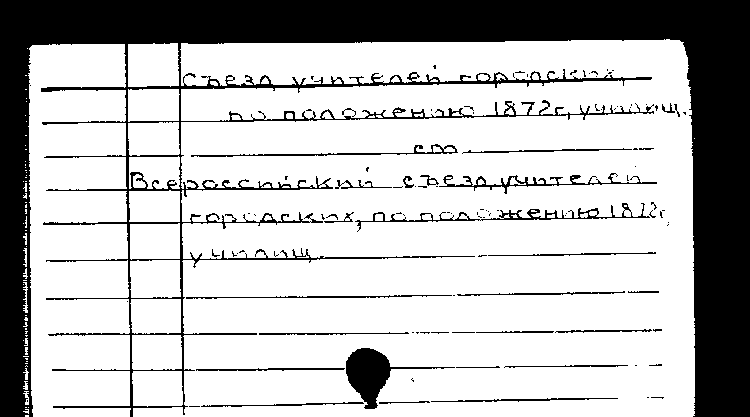 Съезд учителей городских,
по положению 1872г, училищ.
см.
Всероссийский съезд учителей
городских, по положению 1872г,
училищ.